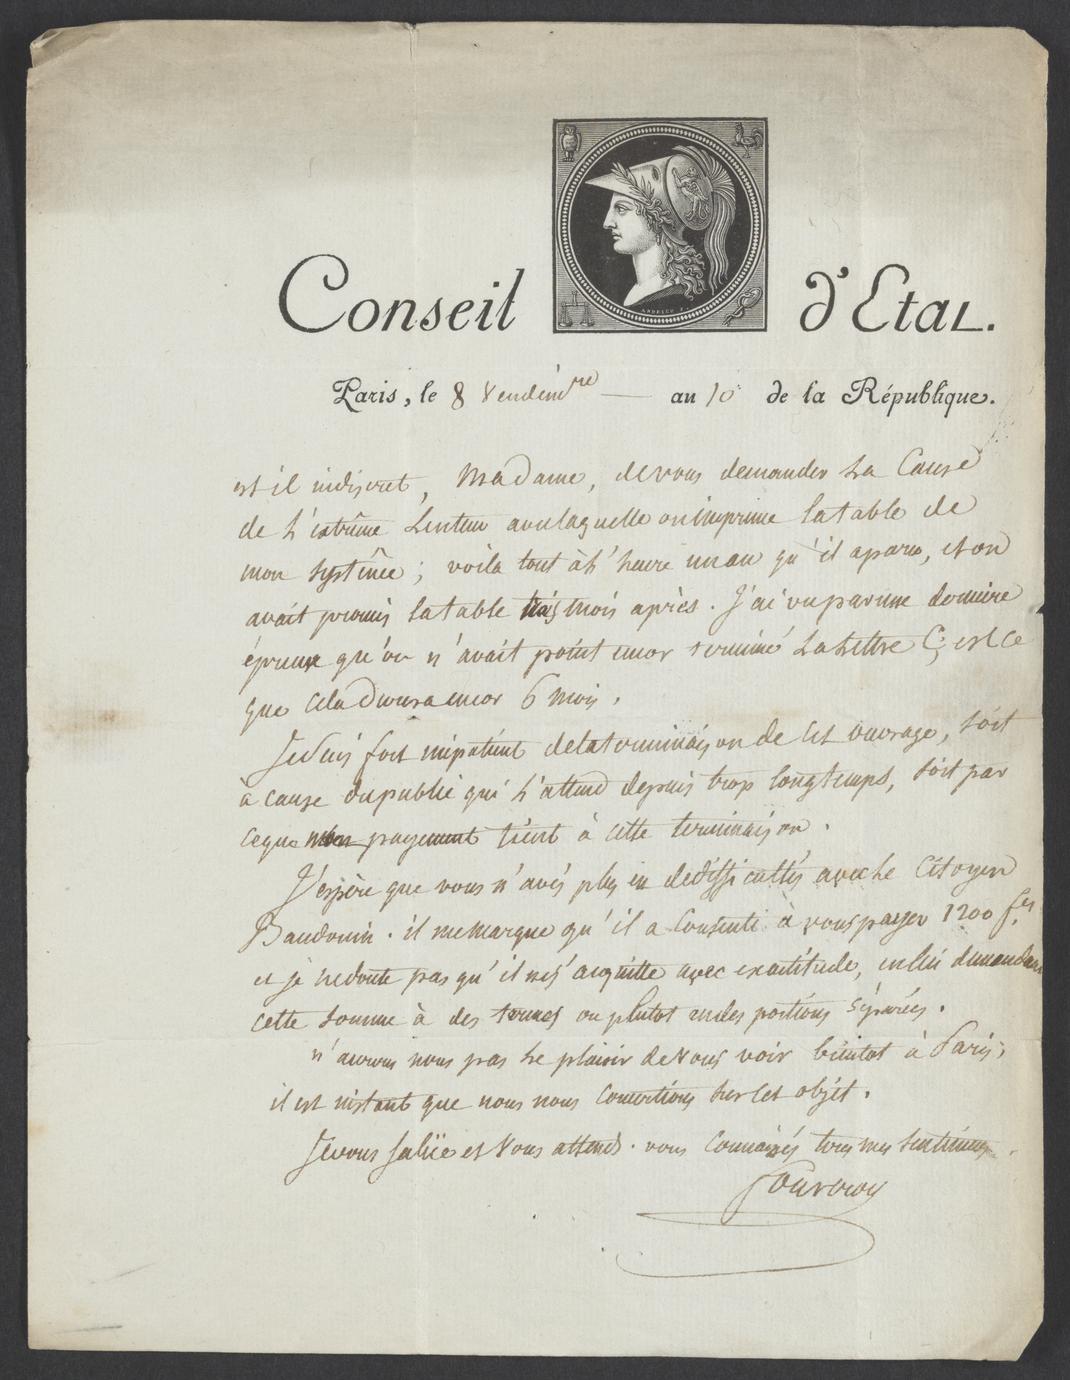 Conseil d'Etat.
ANDRIEU F.
Paris, le 8 Vendém^re — an 10 de la République.
est il indiscret, Madame, de vous demander la Cause
de l'extrême lenteur avec laquelle on imprime la table de
mon système; voila tout à l'heure un an qu'il a paru, et on
avait promis la table trois mois après. J'ai vu par une derniere
épreuve qu'on n'avait point encor terminé la lettre C; est ce
que cela durera encor 6 mois.
Je suis fort impatient de la terminaison de cet ouvrage, soit
à cause du public qui l'attend depuis trop longtemps, soit par
ceque mon payement tient à cette terminaison.
J'espère que vous n'avés plus eu de difficultés avec le Citoyen
Baudouin. il me marque qu'il a consenti à vous payer 1200 f^cs
et je ne doute pas qu'il ne s'acquitte avec exactitude, en lui demandant
cette somme à des termes ou plutot en des portions séparées.
n'aurons nous pas le plaisir de vous voir bientot à Paris;
il est instant que nous nous concertions sur cet objet.
Je vous salüe et vous attends. vous connaissés tous mes sentimens.
Fourcroy